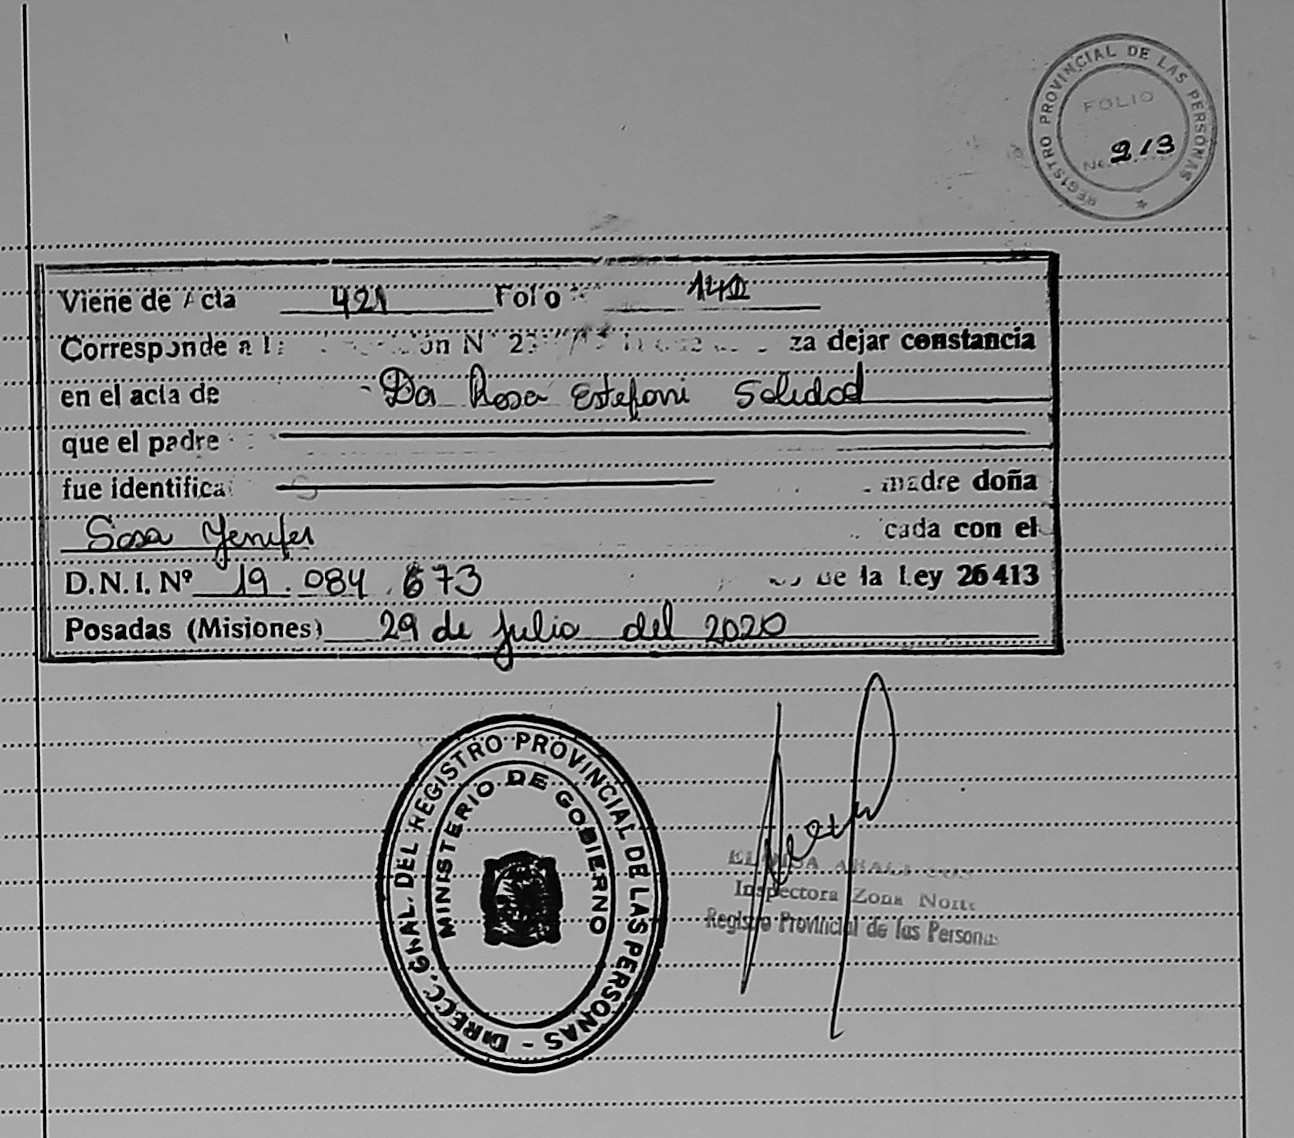 REGISTRO PROVINCIAL DE LAS PERSONAS
FOLIO
No. 213
Viene de Acta 421 Folio 140
Corresponde a N° za dejar constancia
en el acta de Da Rosa Estefani Soledad
que el padre
fue identifica madre doña
Sosa Yenifer cada con el
D.N.I. Nº 19.084.673 de la Ley 26413
Posadas (Misiones) 29 de Julio del 2020
DIRECC. GRAL. DEL REGISTRO PROVINCIAL DE LAS PERSONAS -
MINISTERIO DE GOBIERNO
Inspectora Zona Norte
Registro Provincial de las Personas